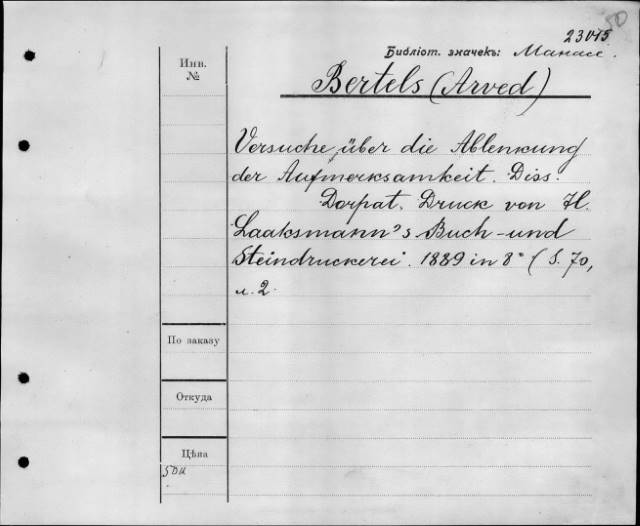 50
23045
Библіот. значекъ: Манасс.
Инв.
№
Bertels (Arved)
Versuche über die Ablenkung
der Aufmerksamkeit. Diss.
Dorpat. Druck von H.
Laaksmann's Buch- und
Steindruckerei. 1889 in 8° (S. 70,
л. 2.
По заказу
Откуда
Цѣна
50